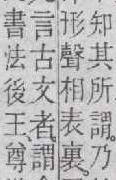 知其所謂。乃
形聲相表裏。
言古文者。謂
書法後王。尊